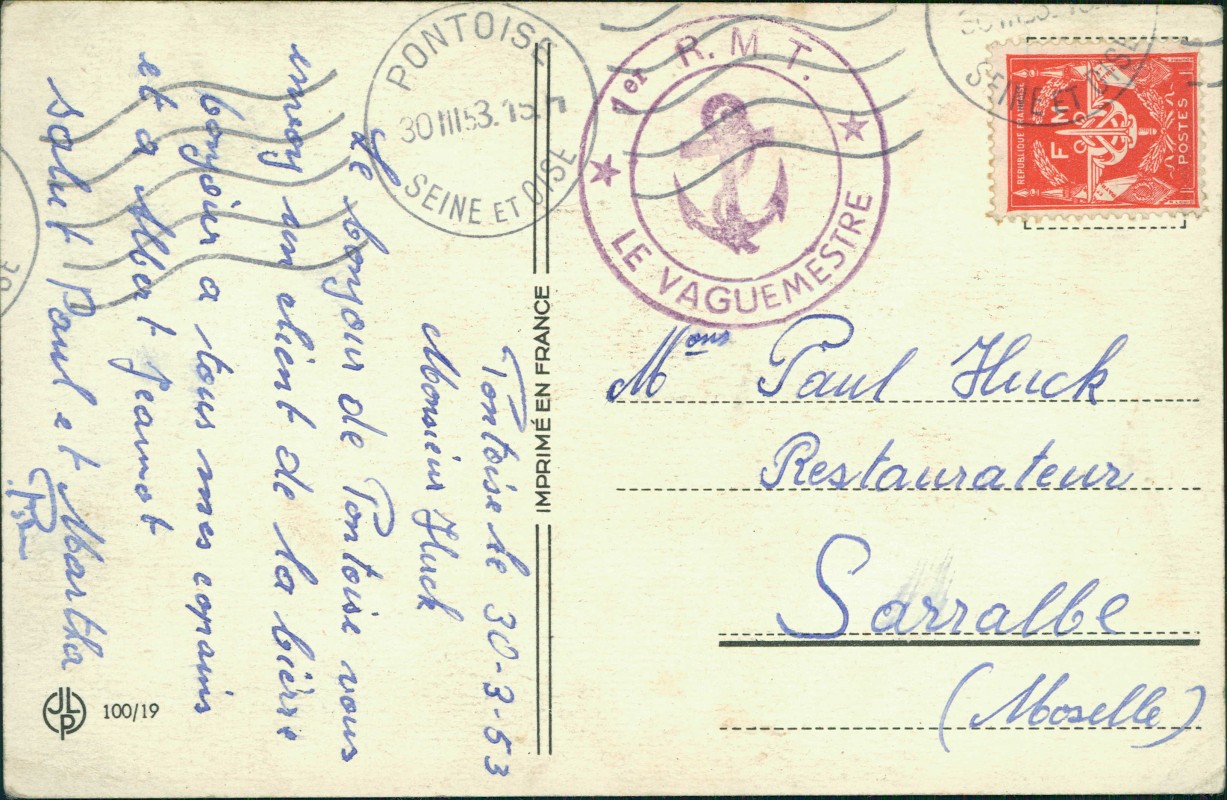 Pontoise le 30-3-53
Monsieur Huck
Le bonjour de Pontoise vous
envoy un client de la bièrre
bonjour a tous mes copains
et a Albert Jeannot
Paul et Martha
IMPRIMÉ EN FRANCE
JLP 100/19
PONTOISE
30 III 53. 15 H
SEINE ET OISE
1er R. M. T.
LE VAGUEMESTRE
SEINE ET OISE
REPUBLIQUE FRANÇAISE
F M
POSTES
Mons Paul Huck
Restaurateur
Sarralbe
(Moselle)